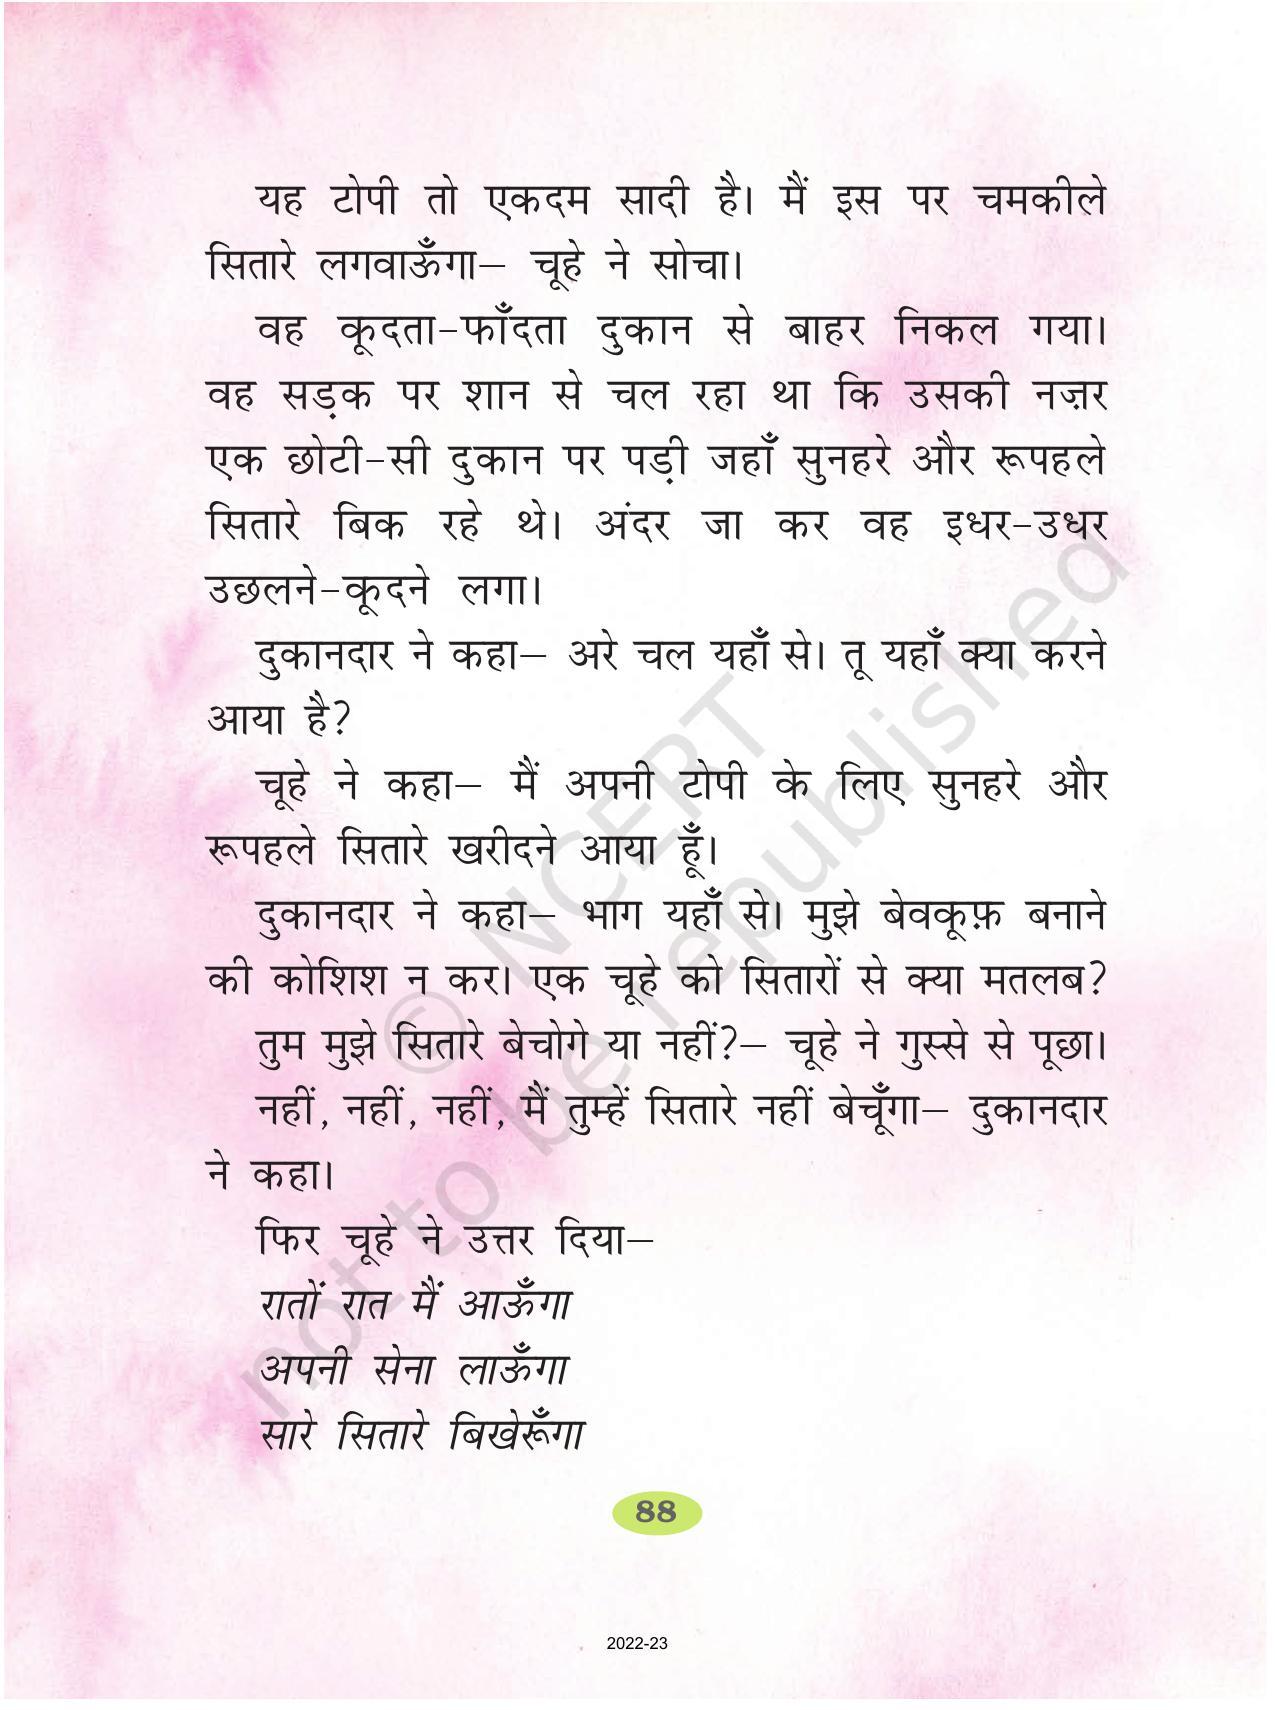 यह टोपी तो एकदम सादी है। मैं इस पर चमकीले
सितारे लगवाऊँगा– चूहे ने सोचा।
वह कूदता-फाँदता दुकान से बाहर निकल गया।
वह सड़क पर शान से चल रहा था कि उसकी नज़र
एक छोटी-सी दुकान पर पड़ी जहाँ सुनहरे और रूपहले
सितारे बिक रहे थे। अंदर जा कर वह इधर-उधर
उछलने-कूदने लगा।
दुकानदार ने कहा– अरे चल यहाँ से। तू यहाँ क्या करने
आया है?
चूहे ने कहा– मैं अपनी टोपी के लिए सुनहरे और
रूपहले सितारे खरीदने आया हूँ।
दुकानदार ने कहा– भाग यहाँ से। मुझे बेवकूफ़ बनाने
की कोशिश न कर। एक चूहे को सितारों से क्या मतलब?
तुम मुझे सितारे बेचोगे या नहीं?– चूहे ने गुस्से से पूछा।
नहीं, नहीं, नहीं, मैं तुम्हें सितारे नहीं बेचूँगा– दुकानदार
ने कहा।
फिर चूहे ने उत्तर दिया–
रातों रात मैं आऊँगा
अपनी सेना लाऊँगा
सारे सितारे बिखेरूँगा
88
2022-23
© NCERT
not to be republished